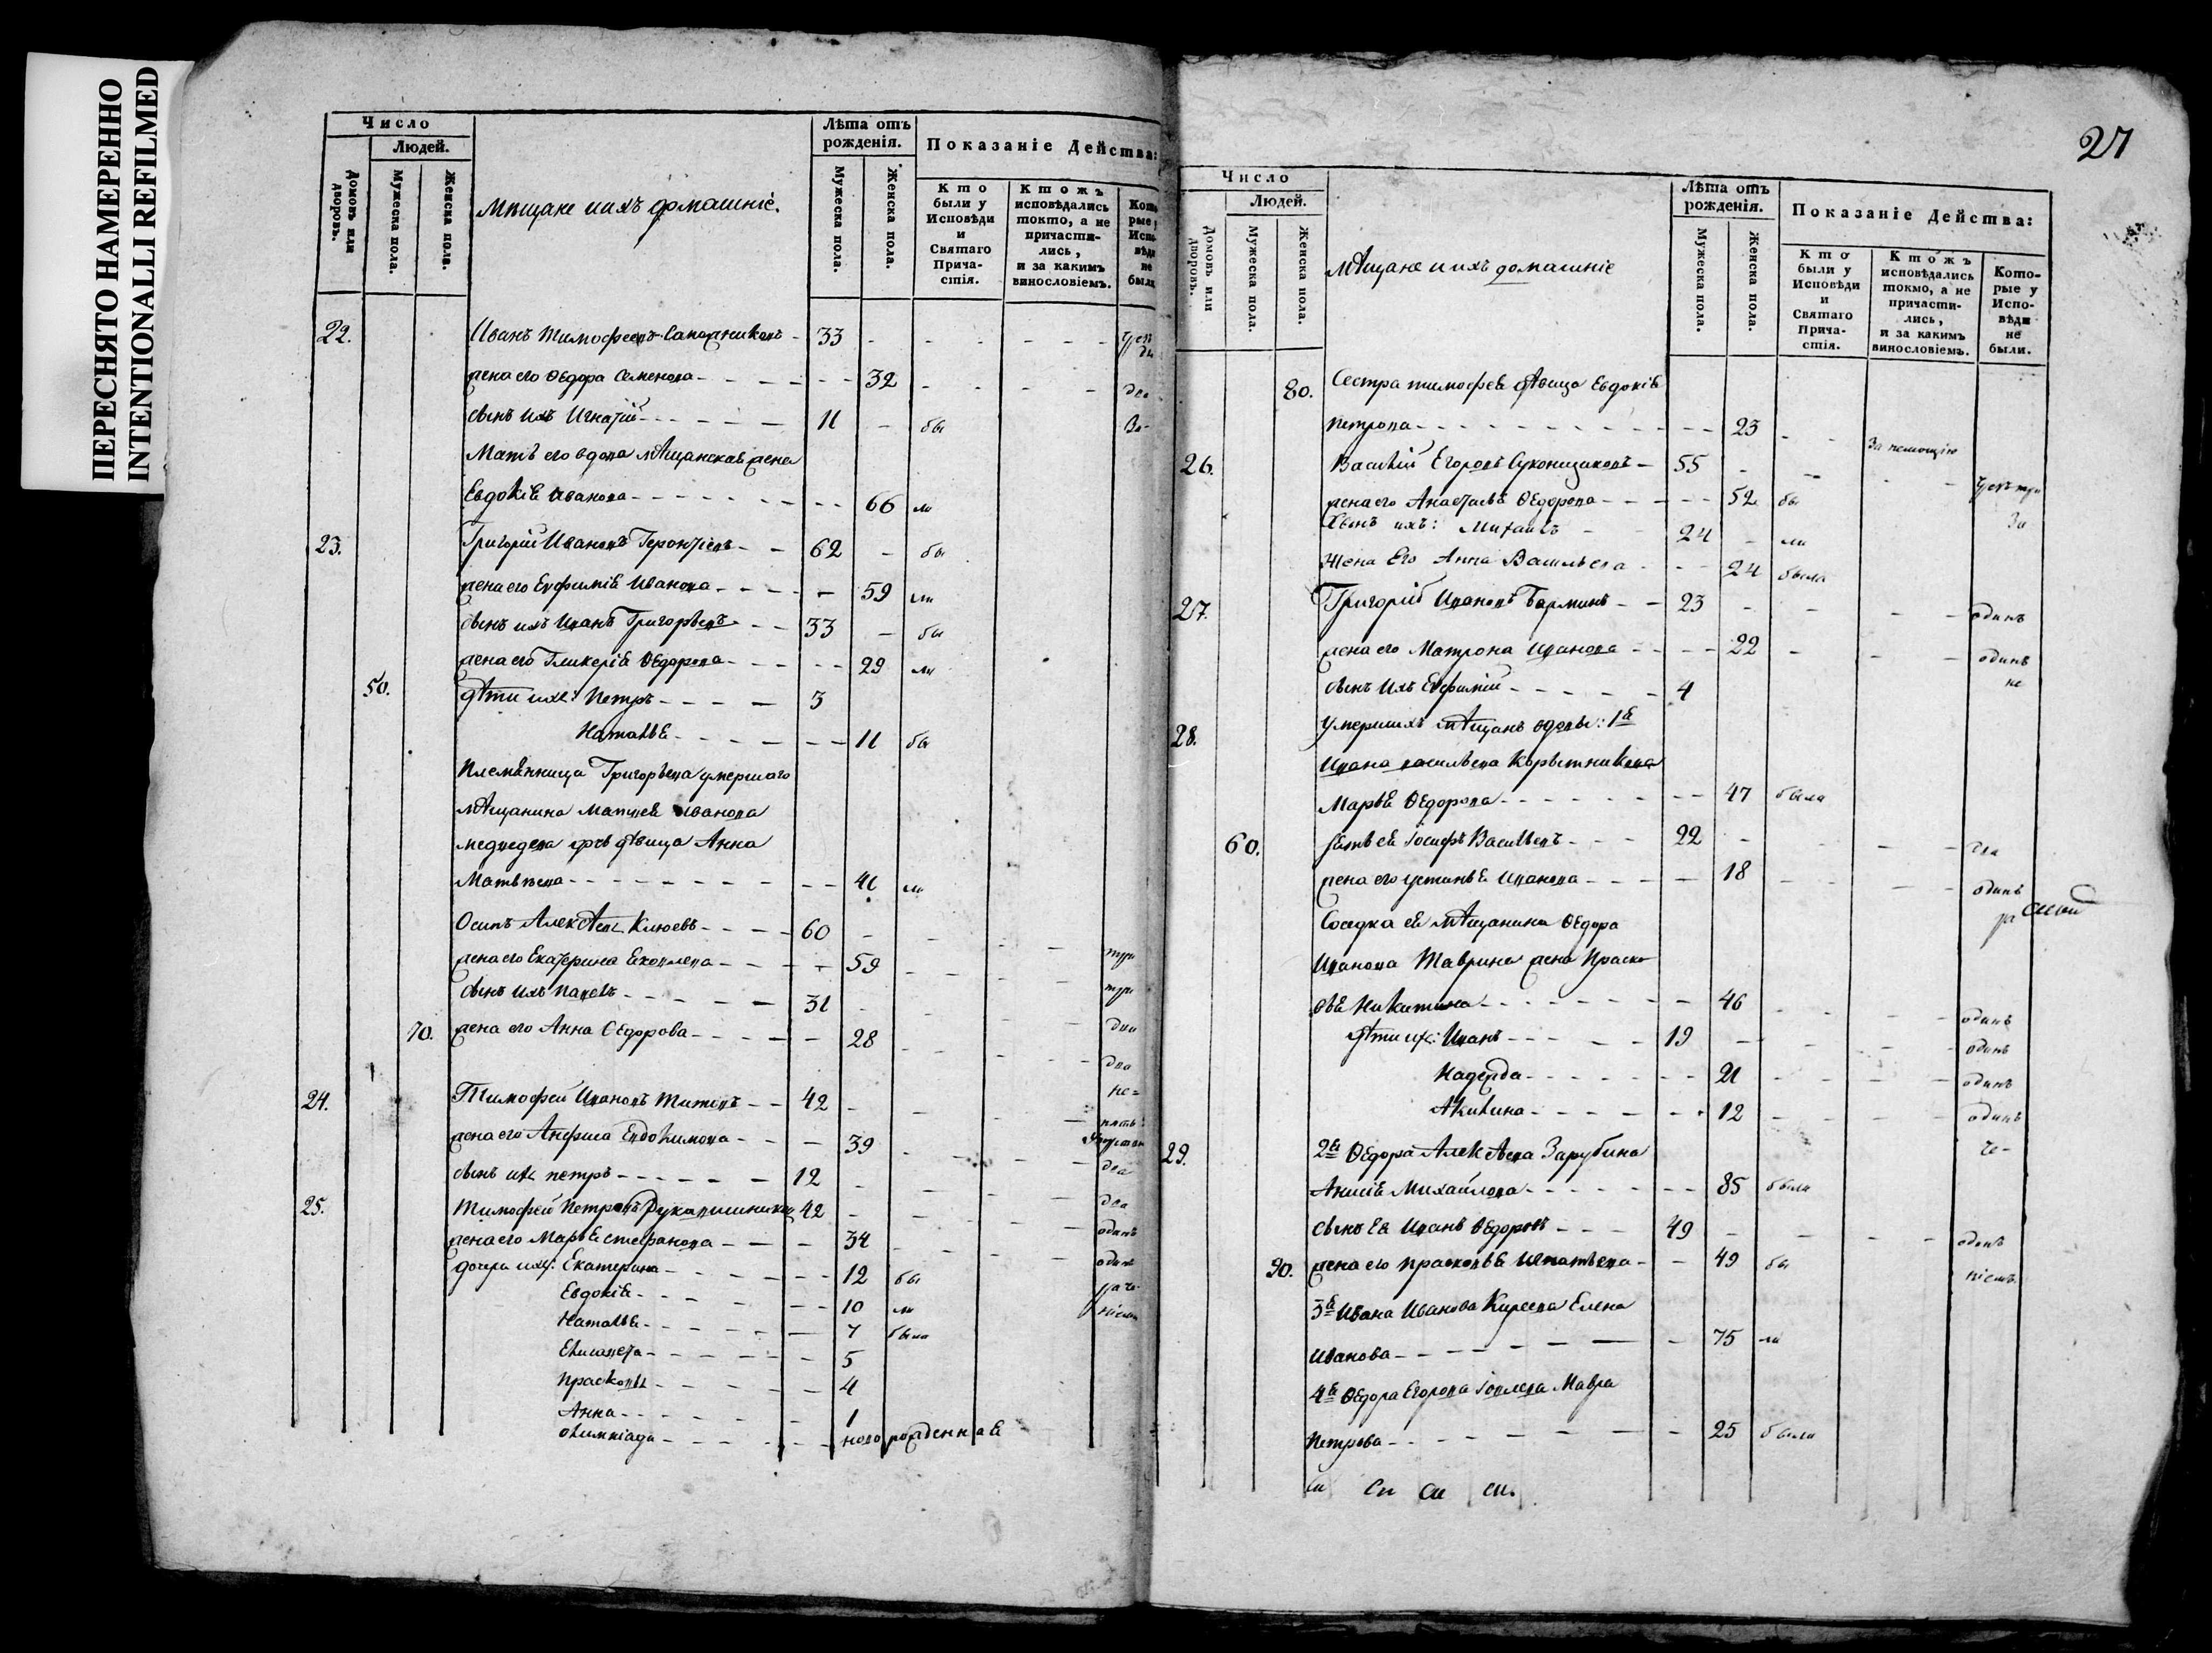 ПЕРЕСНЯТО НАМЕРЕННО
INTENTIONALLI REFILMED
Число
Людей.
Домовъ или дворовъ.
Мужеска пола.
Женска пола.
Мѣщане и ихъ домашніе.
Лѣта отъ рожденія.
Мужеска пола.
Женска пола.
Показаніе Действа:
Кто были у Исповѣди и Святаго Причастія.
Ктожъ исповѣдались токмо, а не причастились, и за какимъ винословіемъ.
22. Иванъ Тимофеевъ 33
жена его Ѳедора Семенова 32
сынъ ихъ Игнатій 11 бы
Мать его вдова мѣщанская жена
Евдокія Иванова 66 ли
23. Григорій Ивановъ Геронтіевъ 62 бы
жена его Евфимія Иванова 59 ли
сынъ ихъ Иванъ Григорьевъ 33 бы
жена его Гликерія Ѳедорова 29 ли
50. дѣти ихъ: Петръ 3
Наталья 11 бы
Племянница Григорьева умершаго
мѣщанина Матвея Иванова
Медведева дочь дѣвица Анна
Матвѣева 41 ли
Осипъ Алексѣевъ Клюевъ 60 три
жена его Екатерина Яковлева 59 три
сынъ ихъ Павелъ 31 два
70. жена его Анна Ѳедорова 28 два
24. Тимофей Ивановъ Титовъ 42
жена его Анфиса Евдокимова 39
сынъ их петръ 12 два
25. Тимофей Петровъ Рукавишников 42 два
жена его Марья Стефанова 34 одинъ
дочери ихъ: Екатерина 12 бы
Евдокія 10 ли
Наталья 7 были
Елисавета 5
Прасковья 4
Анна 1
Олимпіада новорожденная
27
Число
Людей.
Домовъ или дворовъ.
Мужеска пола.
Женска пола.
Мѣщане и ихъ домашніе
Лѣта отъ рожденія.
Мужеска пола.
Женска пола.
Показаніе Действа:
Кто были у Исповѣди и Святаго Причастія.
Ктожъ исповѣдались токмо, а не причастились, и за какимъ винословіемъ.
Которые у Исповѣди не были.
80. Сестра тимофея дѣвица Евдокія
Петрова 23
26. Василій Егоровъ Суконщиковъ 55
жена его Анастасья Ѳедорова 52 бы
Сынъ ихъ: Михаилъ 24 ли
Жена Его Анна Васильева 24 была
27. Григорій Ивановъ Барминъ 23 одинъ
жена его Матрона Иванова 22 одинъ
сынъ ихъ Евфимій 4
28. Умершихъ мѣщанъ вдовы: 1я
Ивана васильева Корытникова
Марья Ѳедорова 47 была
60. зять ея Іосифъ Васильевъ 22 два
жена его устинья Иванова 18 одинъ
Соседка ея мѣщанина Ѳедора
Иванова Таврина жена Праско
вья Никитина 46 одинъ
дѣти их: Иванъ 19 одинъ
Надежда 21 одинъ
Акилина 12 одинъ
29. 2я Ѳедора Алексѣева Зарубина
Анисія Михайлова 85 была
сынъ Ея Иванъ Ѳедоровъ 49 одинъ
90. жена его прасковья Игнатьева 49 бы
3я Ивана Иванова Киреева Елена
Иванова 75 ли
4я Ѳедора Егорова Мавра
Петрова 25 были